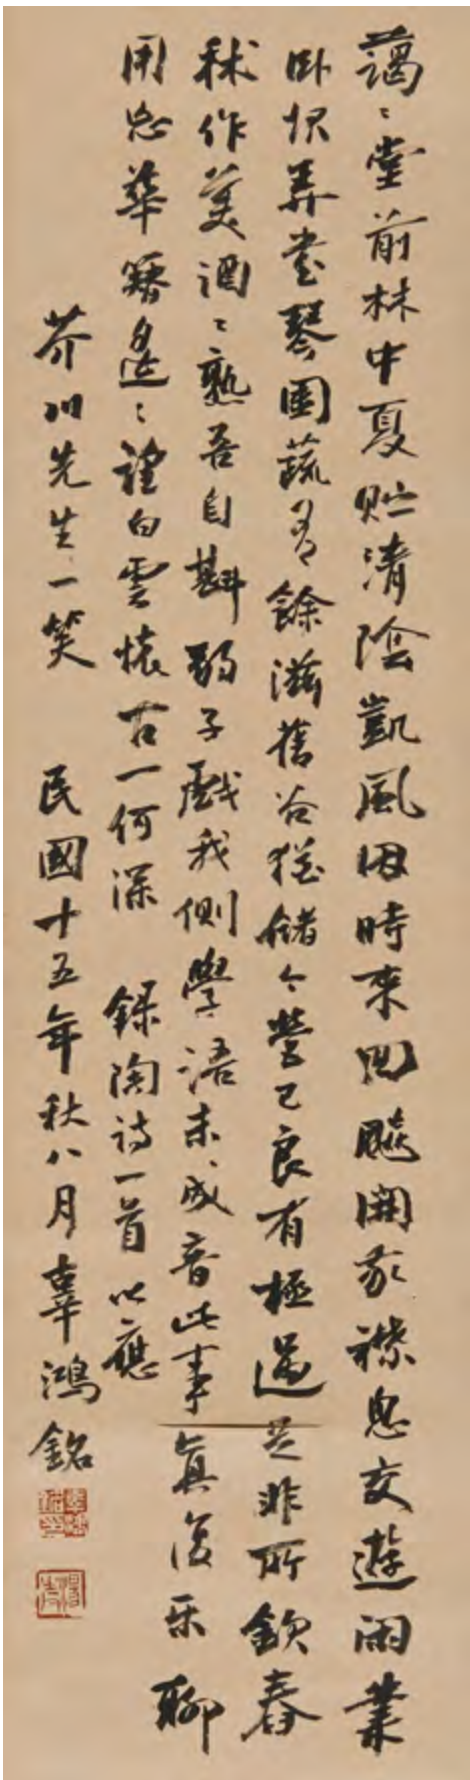 藹〻堂前林中夏貯清陰凱風因時來回飈開我襟息交遊閑業
卧起弄書琴園蔬有餘滋舊谷猶儲今營己良有極過足非所欽舂
秫作美酒〻熟吾自斟弱子戲我側學語未成音此事真復樂聊
用忘華簪遙〻望白雲懷古一何深 錄陶詩一首以應
芥川先生一笑 民國十五年秋八月辜鴻銘
辜鴻銘印
湯生